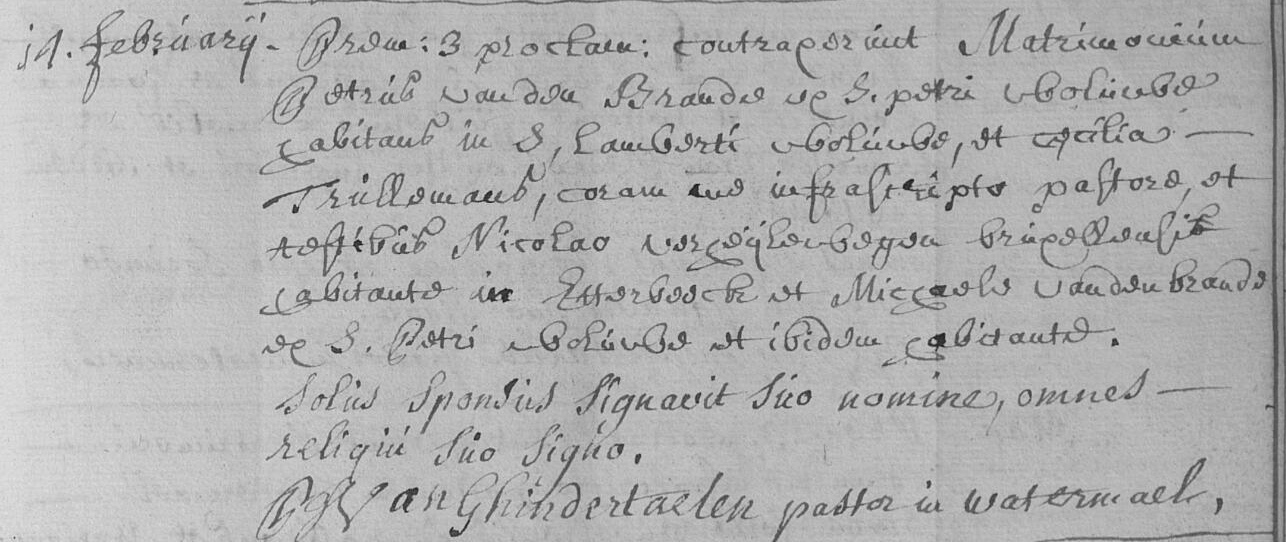 14. februarÿ. Prem: 3 proclam: contraxerunt Matrimonium
Petrus vanden Brande ex S. petri wolüwe
habitans in S, Lamberti wolüwe, et cecilia —
Trullemans, coram me infrascripto pastore, et
testibus Nicolao verheÿlewegen bruxellensis
habitante in Etterbeeck et Michaele vanden brande
ex S. Petri wolüwe et ibidem habitante.
Solus Sponsus Signavit Suo nomine, omnes —
reliqui Suo Signo.
Van Ghindertaelen pastor in watermael,